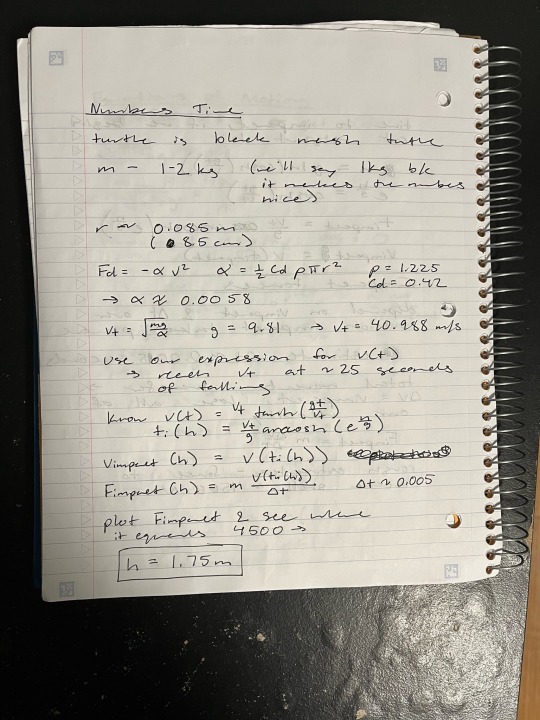 Numbers Time
turtle is black marsh turtle
m - 1-2 kg (we'll say 1kg b/c
it makes the numbers
nice)
r ~ 0.085 m
(8.5 cm)
Fd = -αv² α = ½ Cd ρπr² ρ = 1.225
Cd = 0.42
→ α ≈ 0.0058
v₊ = √(mg/α) g = 9.81 → v₊ = 40.988 m/s
use our expression for v(t)
→ reach v₊ at ~ 25 seconds
of falling
know v(t) = v₊ tanh(gt/v₊)
ti(h) = v₊/g arccosh(e^
Vimpact (h) = v(ti(h))
Fimpact (h) = m v(ti(h))/Δt Δt ~ 0.005
plot Fimpact & see where
it equals 4500 →
h = 1.75m